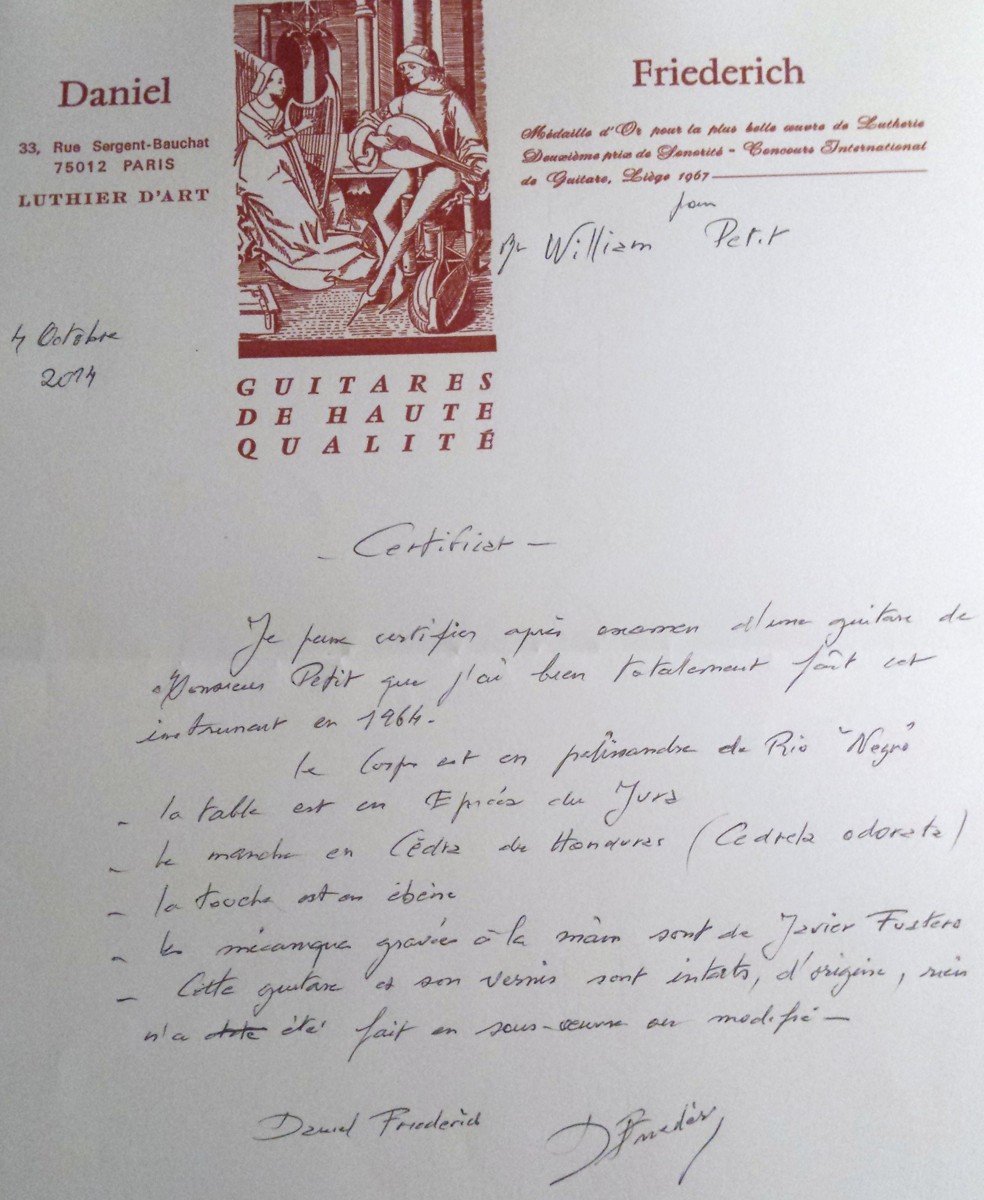 Daniel
33, Rue Sergent-Bauchat
75012 PARIS
LUTHIER D'ART
Friederich
Médaille d'Or pour la plus belle œuvre de Lutherie
Deuxième prix de Sonorité - Concours International
de Guitare, Liège 1967
pour
Mr William Petit
4 Octobre
2014
GUITARES
DE HAUTE
QUALITÉ
- Certificat -
Je puis certifier après examen d'une guitare de
Monsieur Petit que j'ai bien totalement fait cet
instrument en 1964.
le corps est en palissandre de Rio "Negro"
- la table est en Epicéa du Jura
- le manche en Cèdre du Honduras (Cedrela odorata)
- la touche est en ébène
- les mécaniques gravées à la main sont de Javier Fustero
- Cette guitare et son vernis sont intacts, d'origine, rien
n'a été fait en sous-œuvre ou modifié -
Daniel Friederich
D Friederich